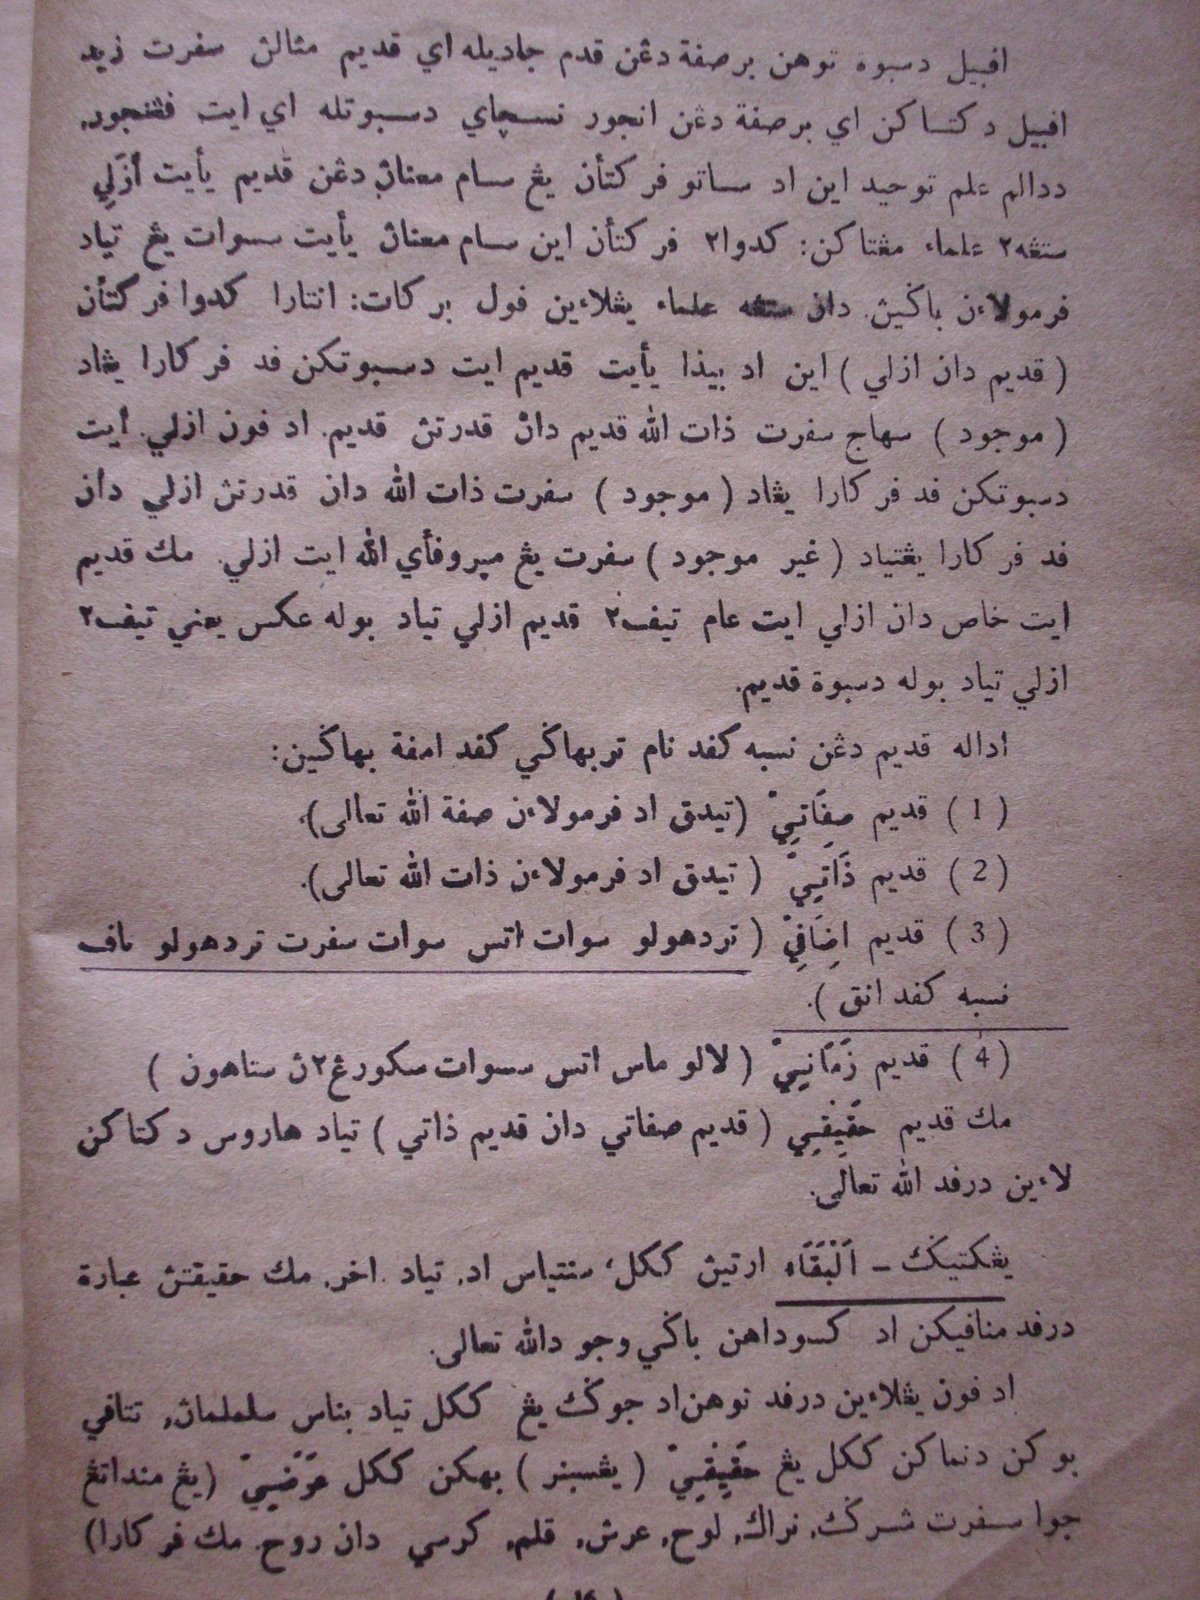 افبيل دسبوه توهن برصفة دڠن قدم جاديله اي قديم مثالڽ سفرت زيد
افبيل دکتاکن اي برصفة دڠن انجور نسچاي دسبوتله اي ايت فڠنجور.
ددالم علم توحيد اين اد ساتو فرکتأن يڠ سام معناڽ دڠن قديم يأيت أزَلِي
ستڠه٢ علماء مڠتاکن: کدوا٢ فرکتأن اين سام معناڽ يأيت سسوات يڠ تياد
فرمولاءن باݢيڽ. دان ستڠه علماء يڠلاءين فول برکات: انتارا کدوا فرکتأن
( قديم دان ازلي ) اين اد بيذا يأيت قديم ايت دسبوتکن فد فرکارا يڠاد
( موجود ) سهاج سفرت ذات الله قديم دان قدرتڽ قديم. اد فون ازلي. ايت
دسبوتکن فد فرکارا يڠاد ( موجود ) سفرت ذات الله دان قدرتڽ ازلي دان
فد فرکارا يڠتياد ( غير موجود ) سفرت يڠ ميروفأي الله ايت ازلي. مك قديم
ايت خاص دان ازلي ايت عام تيف٢ قديم ازلي تياد بوله عکس يعني تيف٢
ازلي تياد بوله دسبوة قديم.
اداله قديم دڠن نسبه کفد نام تربهاݢي کفد امفة بهاݢين:
( 1 ) قديم صِفَاتِيْ (تيدق اد فرمولاءن صفة الله تعالى).
( 2 ) قديم ذَاتِيْ ( تيدق اد فرمولاءن ذات الله تعالى).
( 3 ) قديم اِضَافِيْ ( تردهولو سوات اتس سوات سفرت تردهولو باف
نسبه کفد انق ).
( 4 ) قديم زَمَانِيْ ( لالو ماس اتس سسوات سکورڠ٢ڽ ستاهون )
مك قديم حَقِيقِيْ ( قديم صفاتي دان قديم ذاتي ) تياد هاروس دکتاکن
لاءين درفد الله تعالى.
يڠکتيݢ – اَلْبَقَاء ارتيڽ ککل، سنتياس اد, تياد اخر, مك حقيقتڽ عبارة
درفد منافيکن اد کسوداهن باݢي وجود الله تعالى.
اد فون يڠلاءين درفد توهن اد جوݢ يڠ ککل تياد بناس سلملماڽ, تتافي
بوکن دنماکن ککل يڠ حَقِيقِيْ ( يڠسبنر ) بهکن ککل عَرَضِيْ (يڠ منداتڠ
جوا سفرت شرݢ, نراك, لوح, عرش, قلم, کرسي دان روح. مك فرکارا)